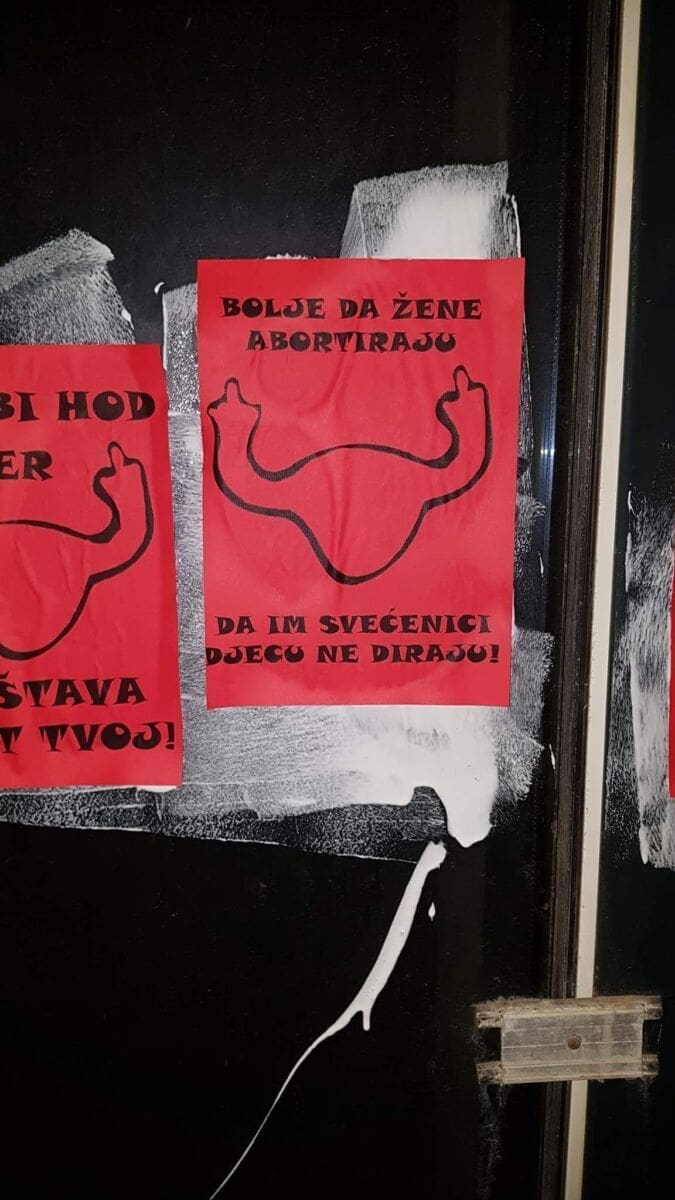 BI HOD
ER
ŠTAVA
T TVOJ!
BOLJE DA ŽENE
ABORTIRAJU
DA IM SVEĆENICI
DJECU NE DIRAJU!